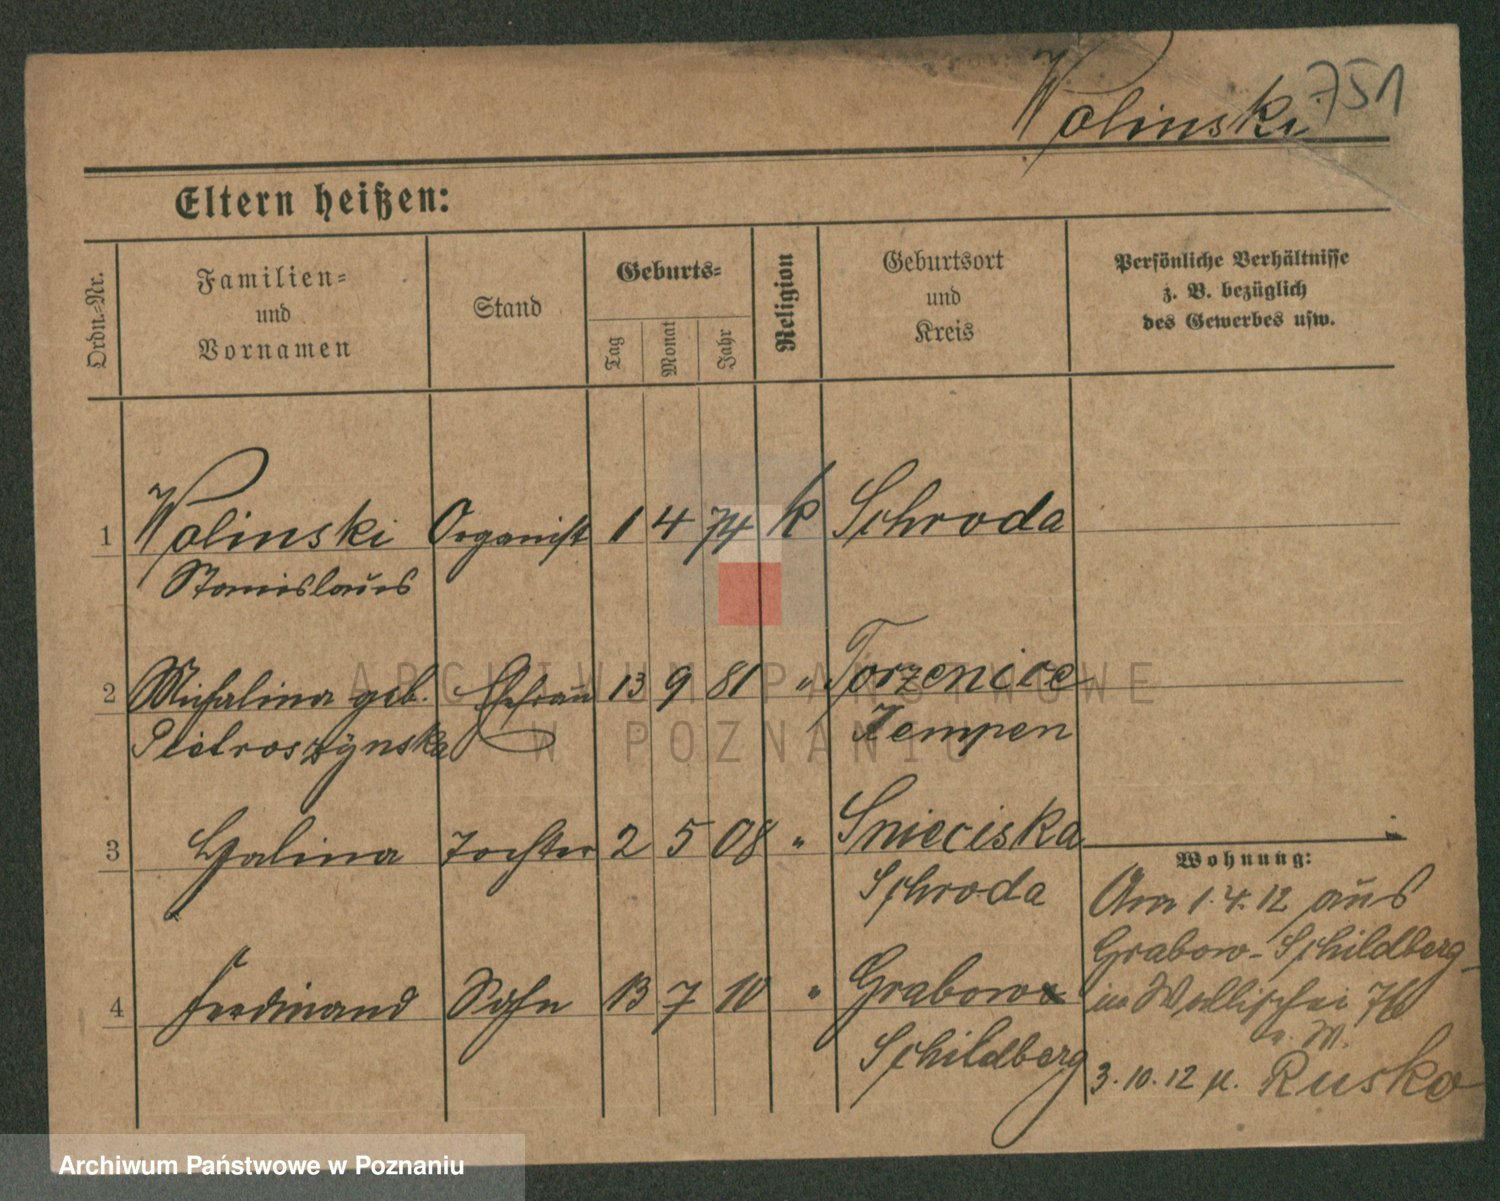 751
Wolinski
Eltern heißen:
Ordn.-Nr.
Familien-
und
Vornamen
Stand
Geburts-
Tag
Monat
Jahr
Religion
Geburtsort
und
Kreis
Persönliche Verhältnisse
z. B. bezüglich
des Gewerbes usw.
1 Wolinski Organist 1 4 74 k Schroda
Stanislaus
2 Michalina geb. Ehefrau 13 9 81 " Torzenice
Pietroszynska Kempen
3 Halina Tochter 2 5 08 " Snieciska
Schroda
4 Ferdinand Sohn 13 7 10 " Grabow
Schildberg
Wohnung:
Am 1.4.12 aus
Grabow-Schildberg
in Wallischei
3.10.12 n. Rusko
ARCHIWUM PAŃSTWOWE
W POZNANIU
Archiwum Państwowe w Poznaniu